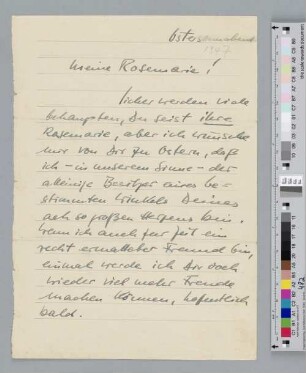 Ostersonnabend
1947
meine Rosemarie!
sicher werden viele
behaupten, Du seist ihre
Rosemarie, aber ich wünsche
mir von Dir zu Ostern, daß
ich – in unserem Sinne – der
alleinige Besitzer eines be-
stimmten Winkels Deines
ach so großen Herzens bin.
Wenn ich auch zur Zeit ein
recht ermatteter Freund bin,
einmal werde ich Dir doch
wieder viel mehr Freude
machen können, hoffentlich
bald.